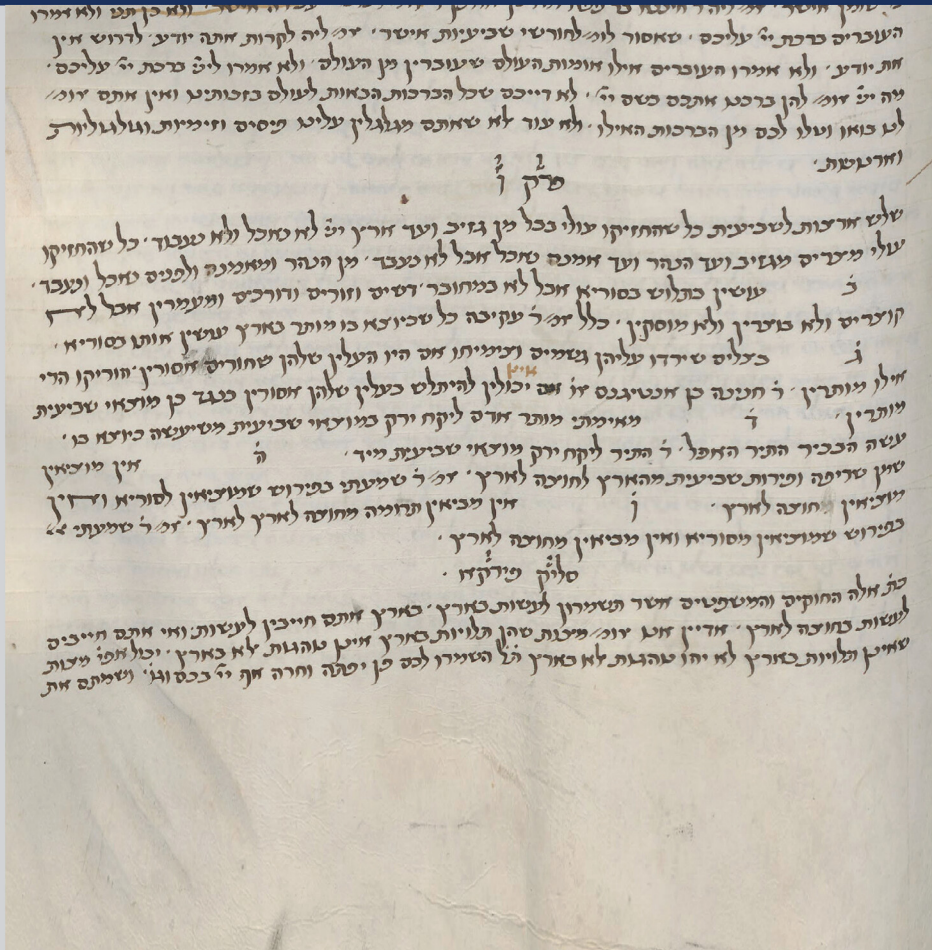 העוברים ברכת יי׳ עליכם · שאסור לומ׳ לחורשי שביעית אישר · אמ׳ ליה לקרות אתה יודע · לדרוש אין
את יודע · ולא אמרו העוברים אילו אומות העולם שעוברין מן העולם · ולא אמרו ליש׳ ברכת יי׳ עליכם ·
מה יש׳ אומ׳ להן ברכנו אתכם בשם יי׳ · לא דייכם שכל הברכות הבאות לעולם בזכותינו ואין אתם אומ׳
לנו בואו וטלו לכם מן הברכות האילו · ולא עוד לא שאתם מגלגלין עלינו פיסים וזימיות וגולגוליות
וארנונות ·
פרק ו׳
שלש ארצות לשביעית כל שהחזיקו עולי בבל מן גזיב ועד ארץ יש׳ לא נאכל ולא נעבוד · כל שהחזיקו
עולי מיצרים מגזיב ועד הנהר ועד אמנה נאכל אבל לא נעבד · מן הנהר ומאמנה ולפנים נאכל ונעבד ·
ב׳ עושין בתלוש בסוריא אבל לא במחובר · דשים וזורים ודורכים ומעמרין אבל לא
קוצרים ולא בוצרין ולא מוסקין · כלל אמ׳ ר׳ עקיבה כל שכיוצא בו מותר בארץ עושין אותו בסוריא ·
ג׳ בצלים שירדו עליהן גשמים וצימיחו אם היו העלין שלהן שחורים אסורין · הוריקו הרי
אילו מותרין · ר׳ חנינה בן אנטיגנס או׳ אם יכולין להיתלש בעלין שלהן אסורין כנגד כן מוצאי שביעית
מותרין · ד׳ מאימתי מותר אדם ליקח ירק במוצאי שביעית משיעשה כיוצא בו ·
עשה הבכיר התיר האפל · ר׳ התיר ליקח ירק מוצאי שביעית מיד · ה׳ אין מוציאין
שמן שריפה ופירות שביעית מהארץ לחוצה לארץ · אמ׳ ר׳ שמעתי בפירוש שמוציאין לסוריא ואין
מוציאין חוצה לארץ · ו׳ אין מביאין תרומה מחוצה לארץ לארץ · אמ׳ ר׳ שמעתי
בפירוש שמוציאין מסוריא ואין מביאין מחוצה לארץ ·
סליק פירקא ·
כת׳ אלה החוקים והמשפטים אשר תשמרון לעשות בארץ · בארץ אתם חייבין לעשות ואי אתם חייבים
לעשות בחוצה לארץ · אדיין אנו אומ׳ מצות שהן תלויות בארץ אינן נוהגות לא בארץ · יכול אפי׳ מצות
שאינן תלויות בארץ לא יהו נוהגות לא בארץ ת׳ל׳ השמרו לכם פן יפתה וחרה אף יי׳ בכם וגו׳ ושמתם את